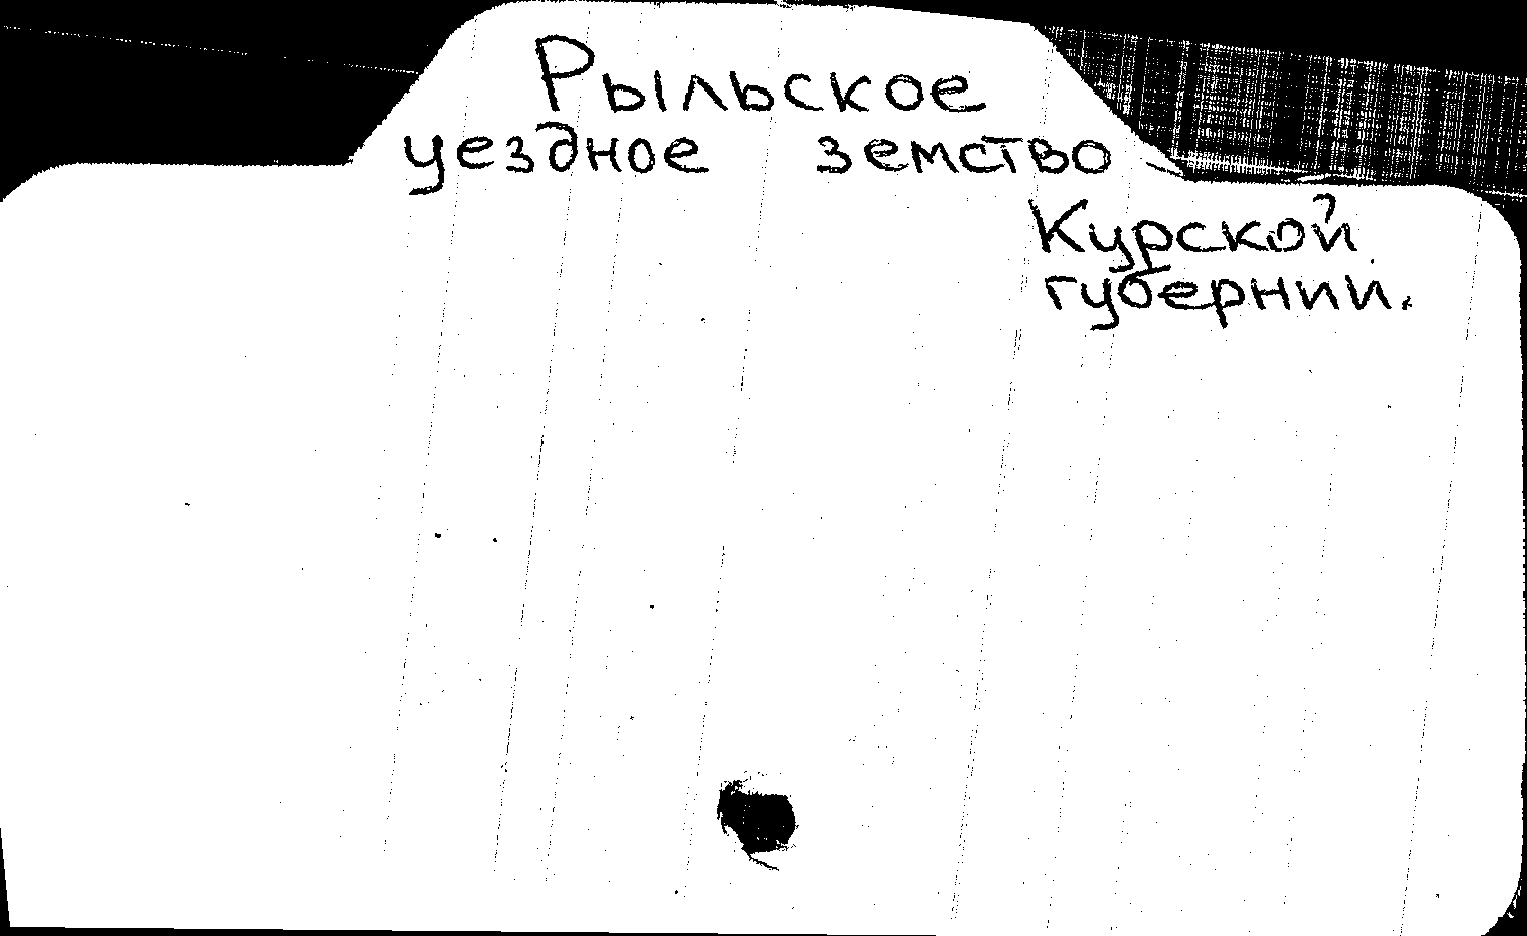 Рыльское
уездное земство
Курской
губернии.